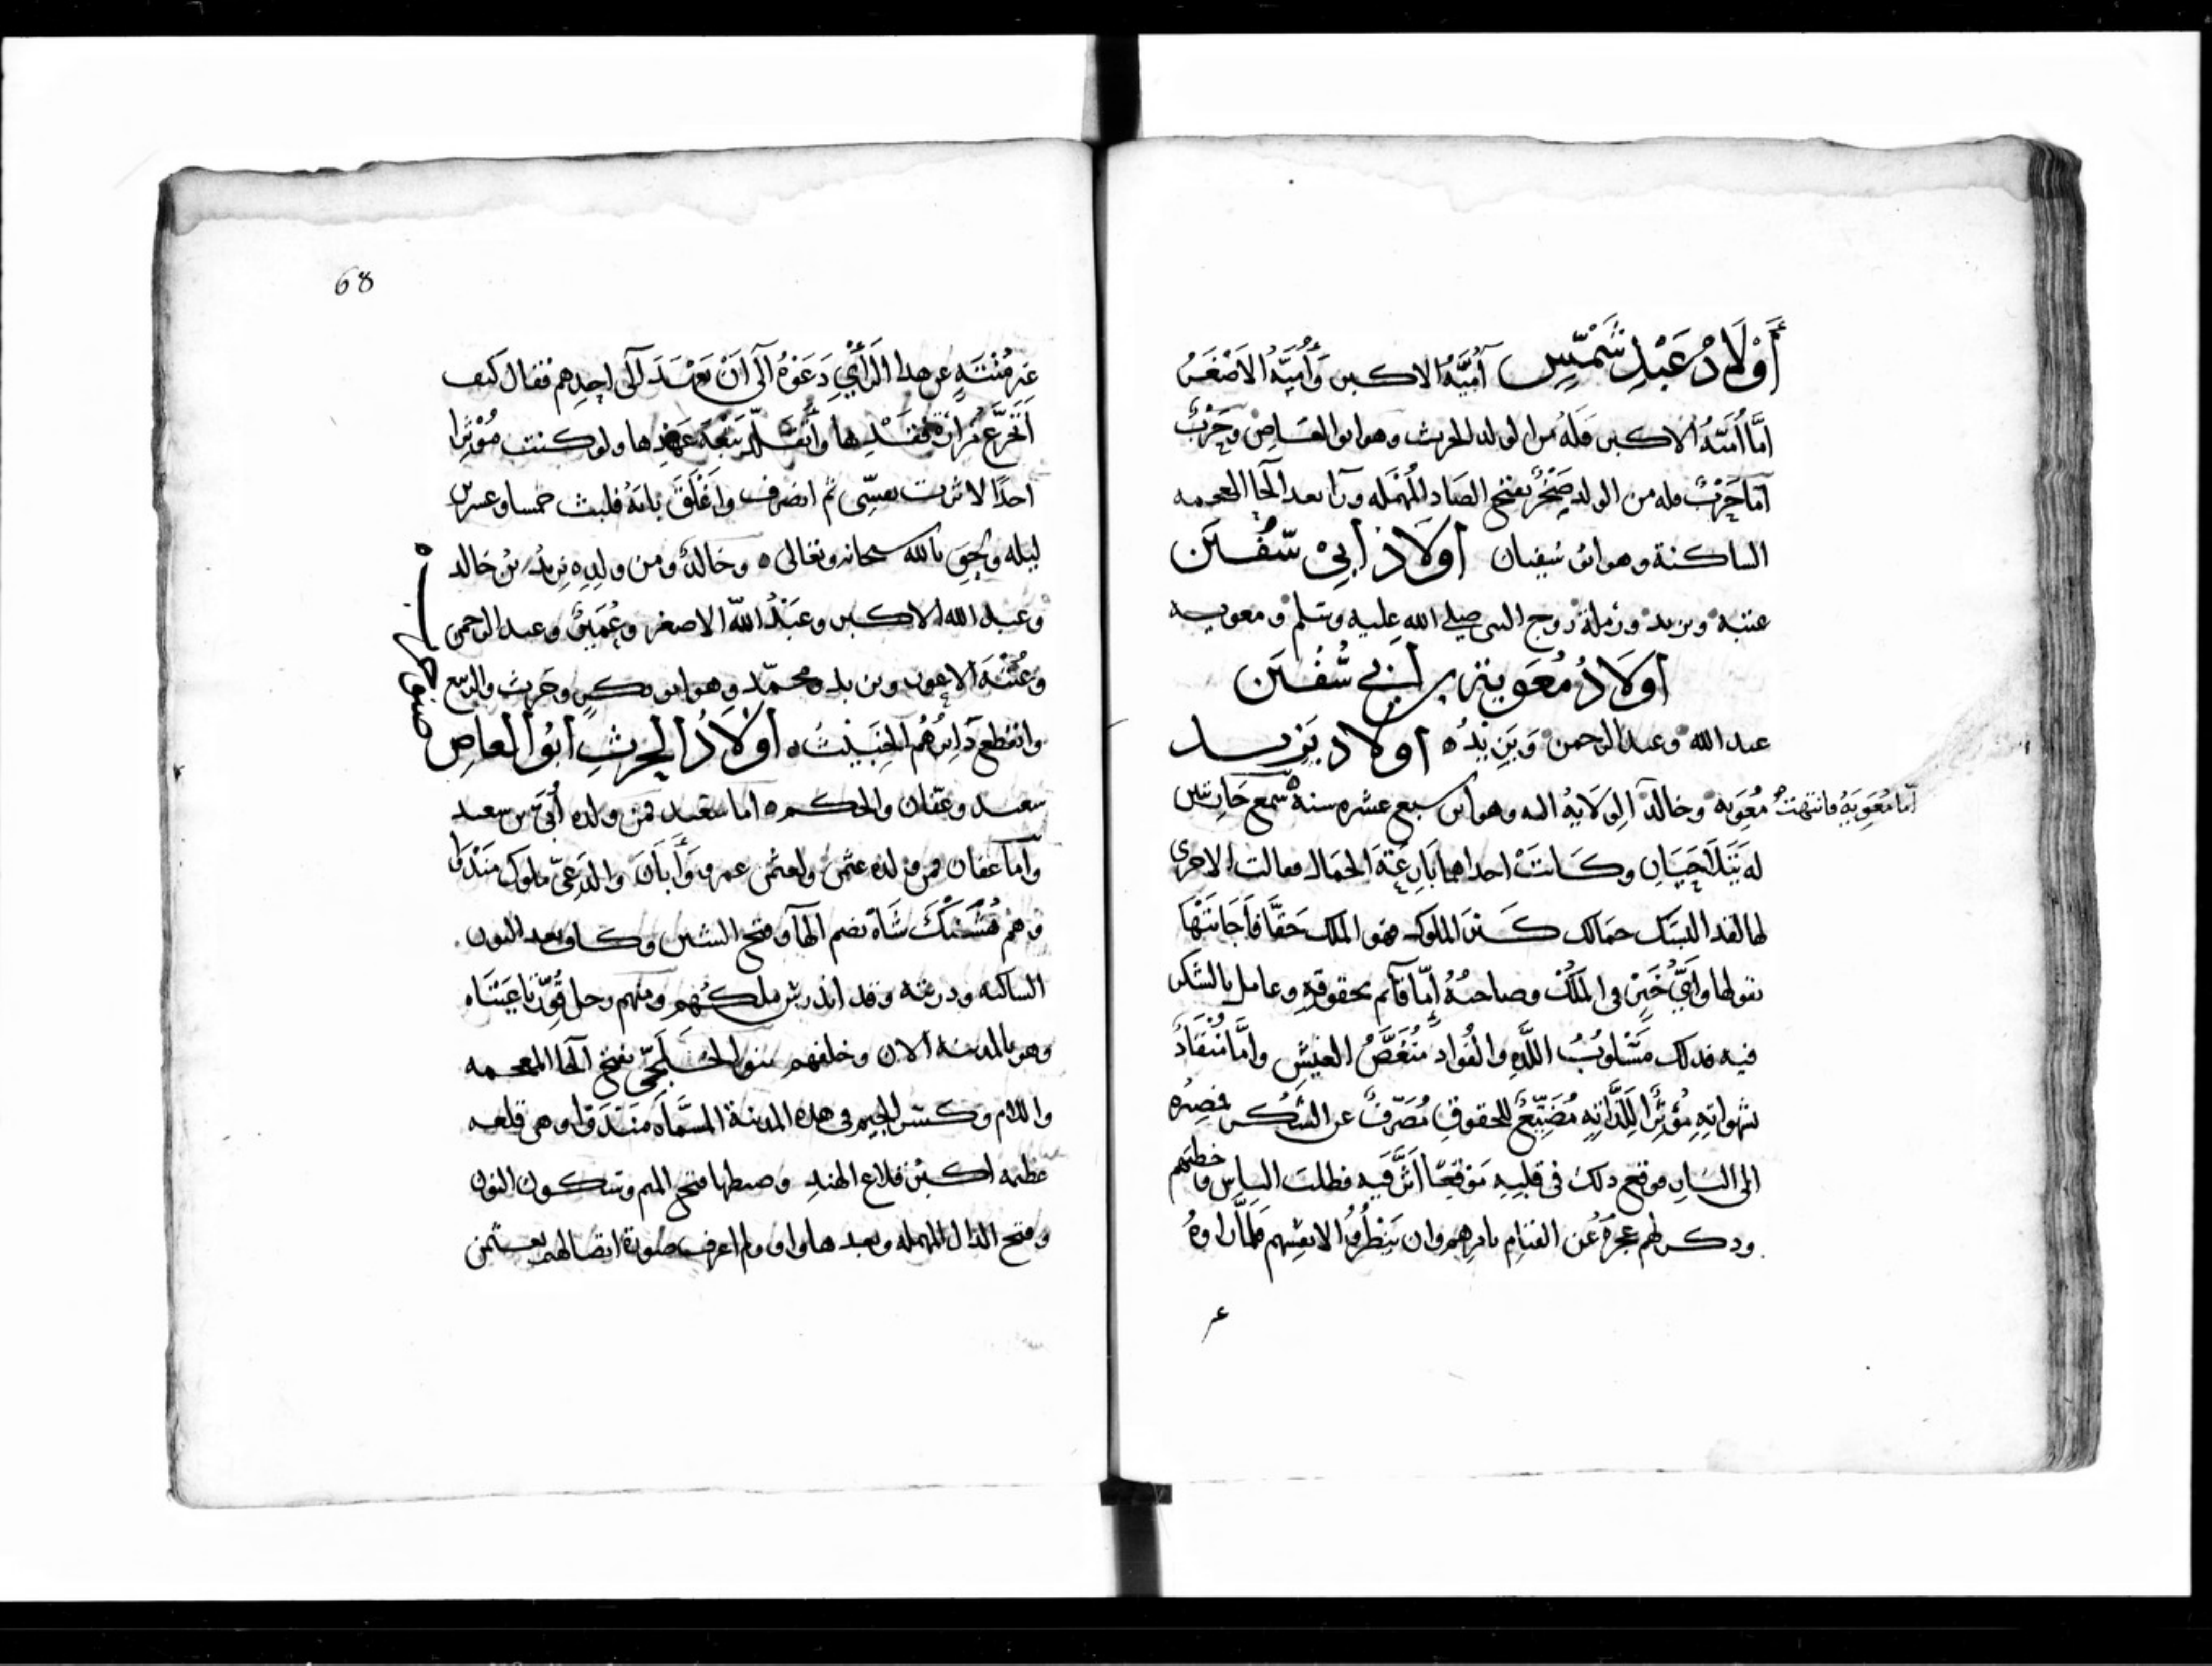 أَوْلَادُ عَبْدِ شَمْسِ أُمَيَّةُ الاكبر وَأُمَيَّةُ الاَصْغَرُ
امَّا أُمَيَّةُ الاكبر فَلَهُ من الولد الحرث وهو ابو العَاصِ وحَرْبٌ
اما حَرْبٌ فله من الولد صَخْرٌ بفتح الصَاد المُهْمَله ورآ بعد الخآ المعجمه
الساكنة وهو ابو سُفيان أولَادُ أبِيْ سُفْيَن
عتبة ويزيد ورَملة زوج النبى صلى الله عليه وسَلم ومعويه
أولَادُ مُعَوية بن أبي سُفْيَن
عبد الله وعبد الرحمن وَيَزِيدُ ه أولَاد يَزيد
امّا مُعَوِيَةُ فانتهتْ
مُعَوِيَه وخالد الوِلَايةُ اليه وهو ابن سبع عشره سنة سمع جَارِيتَين
لهُ يَتَلَاحَيَانِ وكَانتْ احداهما بَارِعَةَ الجمال فقالت الاخرى
لها لقد اكسبك جمالك كبر الملوك فهو الملك حَقَّا فاَجَابَتْهَا
بقولها وَايُّ خَيْرٍ في المُلْكِ وصاحبُهُ إمّا قآئم بحقوقِهِ وعامل بالشكر
فيه فذلك مَسْلُوبُ اللذّةِ والفُواد مُنَغَّصُ العَيْشِ وامَّا مُنْقَادٌ
لشهواتِهِ مُؤْثِرًا لِلَذَّاتِهِ مُضَيِّعٌ للحقوقِ مُصَرِّفٌ عن الشُكر فمصِيرُه
الى النارِ فوقع ذلك فى قلبِهِ مَوْقِعًا اَثَّرَ فيه فطلب الناس وخطبهم
وذكر لهم عَجْزهُ عن القيامِ بامرِهم وان يَنْظُرُوا لانفسِهم فلمّا راوهُ
68
غير مُنْثَنٍ عن هذا الرَأْيِ دَعَوْهُ اَلَى اَنْ يَعْهَدَ الى احدِهم فقال كيف
اَتجرَّعُ مَرَارَة فَقْدِها وأتقلّد تَبِعَةَ عَهْدِها ولو كنت مُؤْثِرا
احدًا لاثرت نفسِى ثم انصرف وَاغْلَقَ بابَهُ فلبث خمسا وعشرين
ليله ولحِقَ بالله سبحانه وتعالى ه وخالدٌ ومن ولدِه يزيدُ بن خالد
وعبد الله الاكبر وعَبْدُ اللّه الاصغر وعُمَيرٌ وعبد الرحمن
وعُتْبَةَ الاعور ويزيد ومحمّد وهو ابو بكر وحَرث والربيع
وانقطع دَابِرُهُم الخَبِيثُ ه أولَادُ الحرثِ ابُو العاصِ
سعيد وعفّان والحكم ه اما سَعيد فمن ولده أُبَيّ بن سعيد
وامّا عفان فمن ولده عثمن ولعثمن عمرو وَأبَانَ والمدّعى ملوك مَنْدَوا
وهم هُشَنْكَ شَاه بضم الهآ وفتح الشين وكاف بعد النون
الساكنه وذريته وقد اندرس ملكُهم ومنهم رجل
وهو بالمدينه الان وخلفهم بنو الخَلجِّى بفتح الخا المعجمه
واللام وكسر الجيم فى هذه المدينة المسَّماه مَنْدَوْا وهى قلعه
عظيمه اكبر قلاع الهند وضبطها بفتح الميم وسكون النون
وفتح الدال المهمله وبعد ها واو ولم اعرف صورة اتصالهم بعثمن